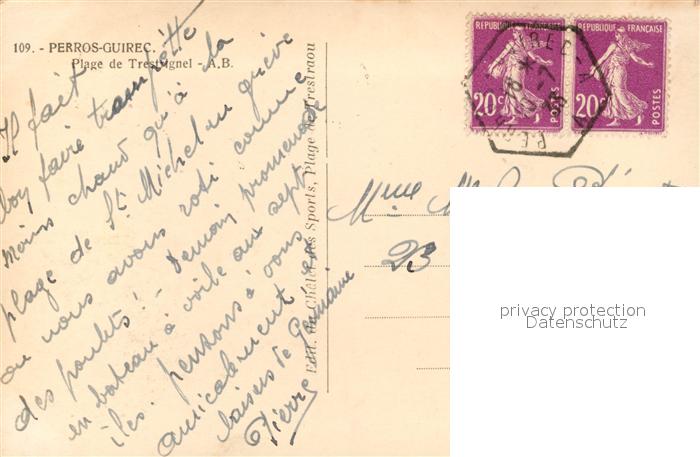 109. - PERROS-GUIREC.
Plage de Trestrignel - A.B.
Il fait
bon faire trempette
moins chaud qu'à la
plage de St Michel en grève
où nous avons roti comme
des poulets! - Demain promenade
en bateau à voile aux sept
îles. pensons à vous
amicalement
baisers de Germaine
Pierre
Edit. du Châlet des Sports, Plage de Trestraou
REPUBLIQUE FRANÇAISE
20c
POSTES
REPUBLIQUE FRANÇAISE
20c
POSTES
Mme M
23
privacy protection
Datenschutz